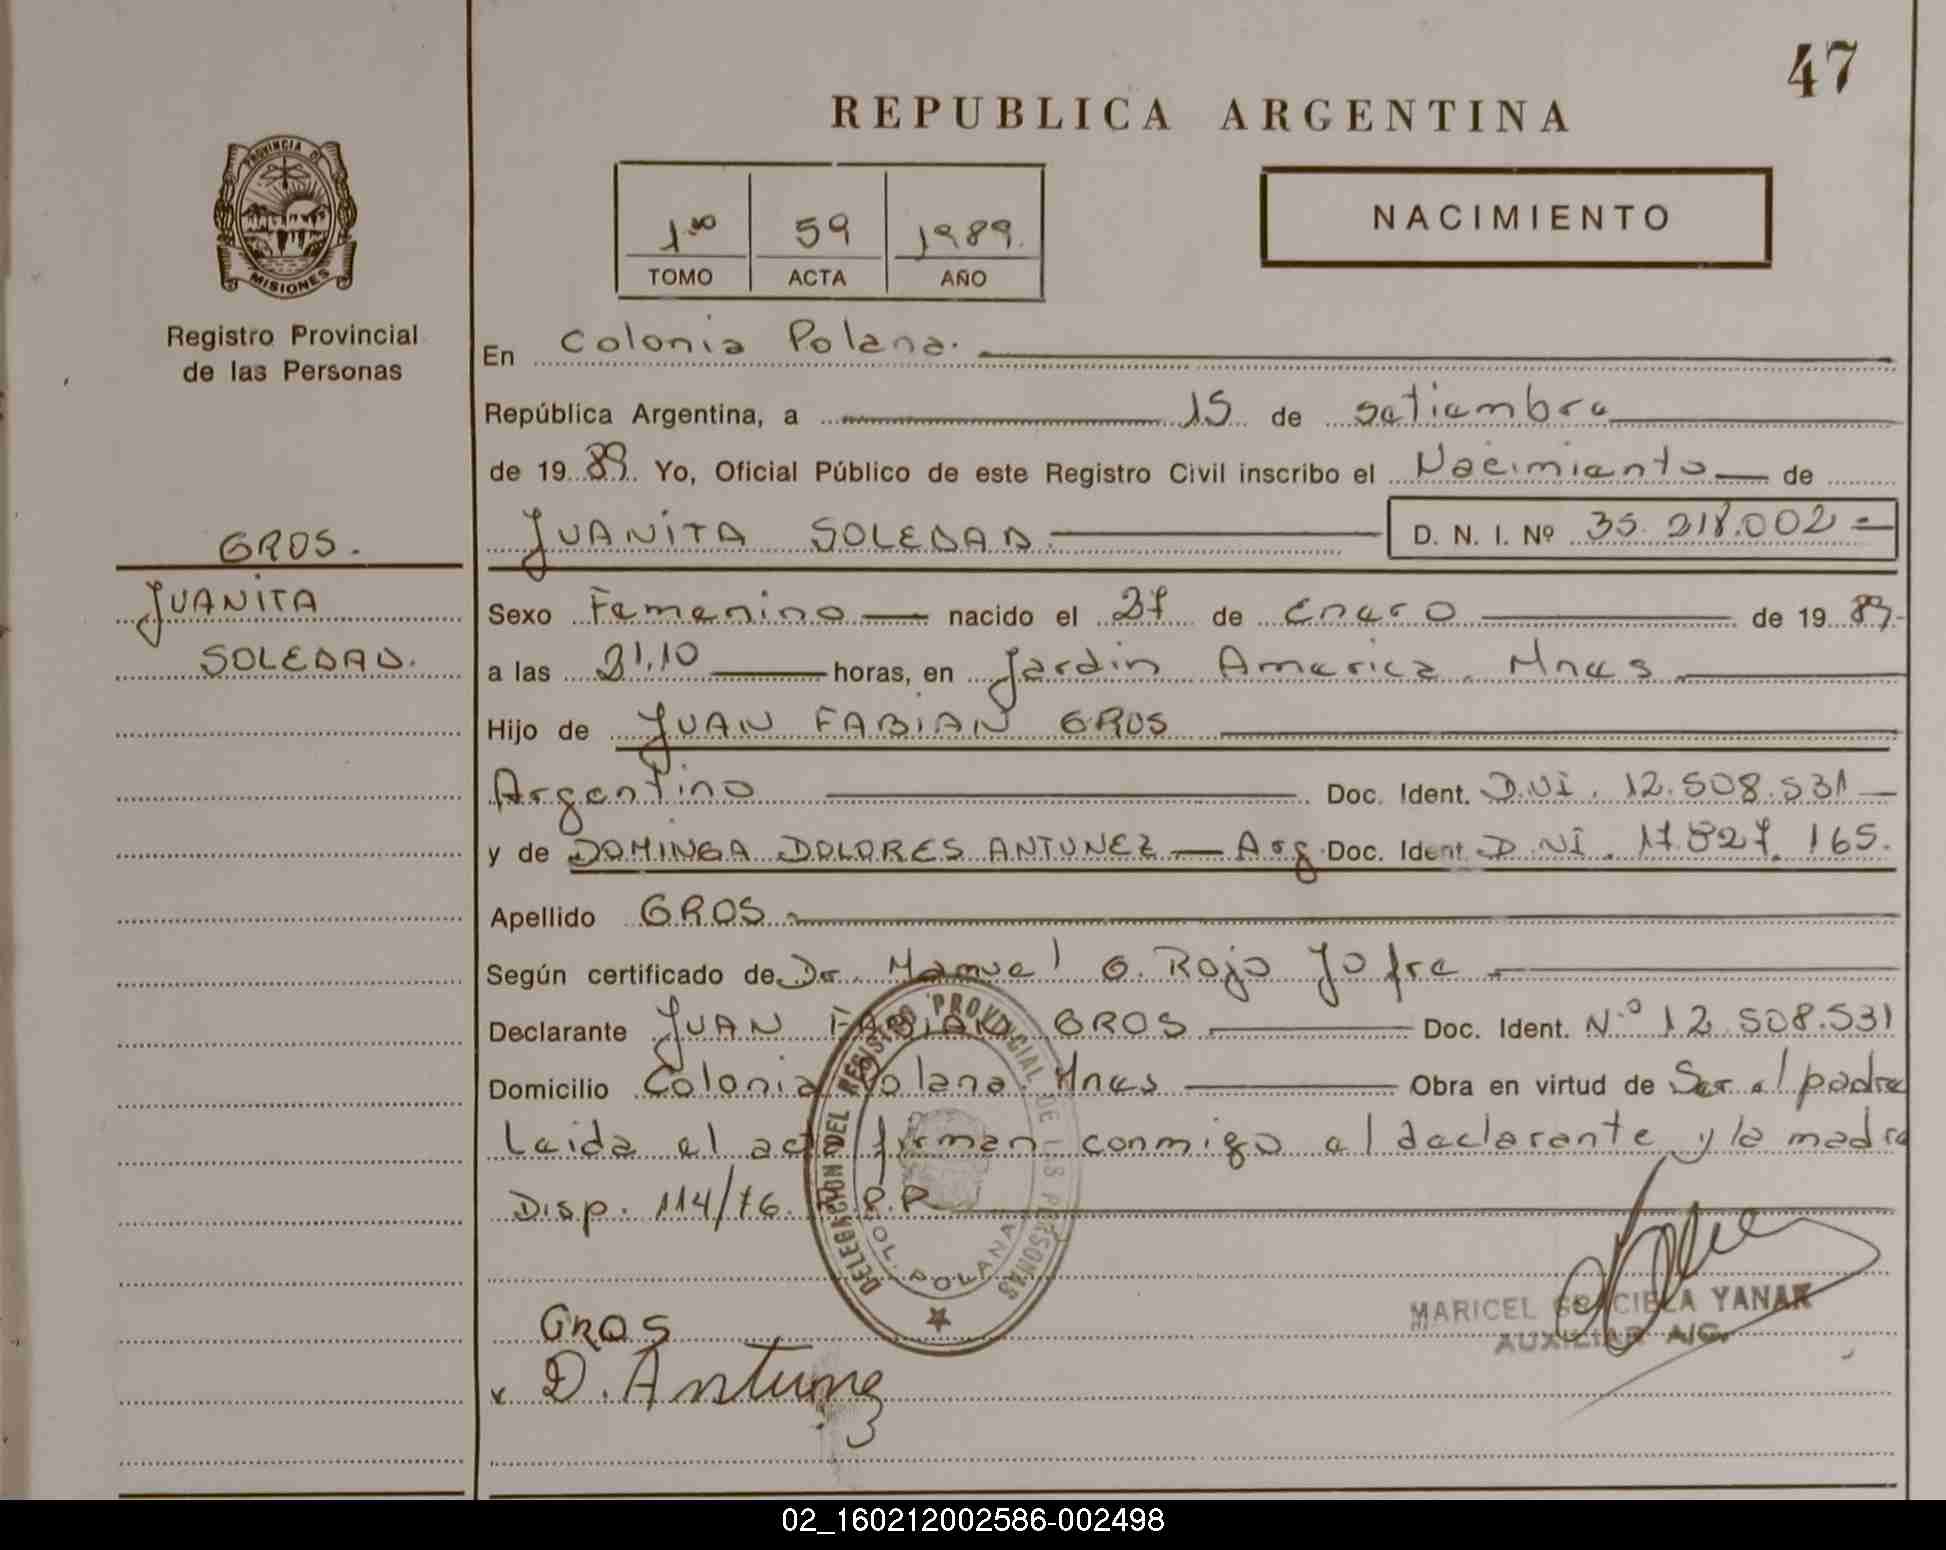 47
REPUBLICA ARGENTINA
PROVINCIA DE
MISIONES
Registro Provincial
de las Personas
1ro 59 1989.
TOMO ACTA AÑO
NACIMIENTO
En Colonia Polana.
República Argentina, a 15 de setiembre
de 1989. Yo, Oficial Público de este Registro Civil inscribo el Nacimiento de
JUANITA SOLEDAD. D. N. I. Nº 35.218.002
GROS.
JUANITA
SOLEDAD.
Sexo Femenino nacido el 27 de Enero de 1989
a las 21,10 horas, en Jardin America. Mnes
Hijo de JUAN FABIAN GROS
Argentino Doc. Ident. D.NI. 12.508.531
y de DOMINGA DOLORES ANTUNEZ — Arg Doc. Ident. D.NI. 17.827.165.
Apellido GROS
Según certificado de Dr. Manuel G. Rojo Jofre
Declarante JUAN FABIAN GROS Doc. Ident. N.º 12.508.531
Domicilio Colonia Polana Mnes Obra en virtud de Ser el padre
Leida el acta firman conmigo el declarante y la madre
Disp. 114/76. R.P.P.
DELEGACION DEL REGISTRO PROVINCIAL DE LAS PERSONAS
COL. POLANA
GROS
MARICEL GRACIELA YANAK
AUXILIAR A/C.
x D. Antunez
02_160212002586-002498